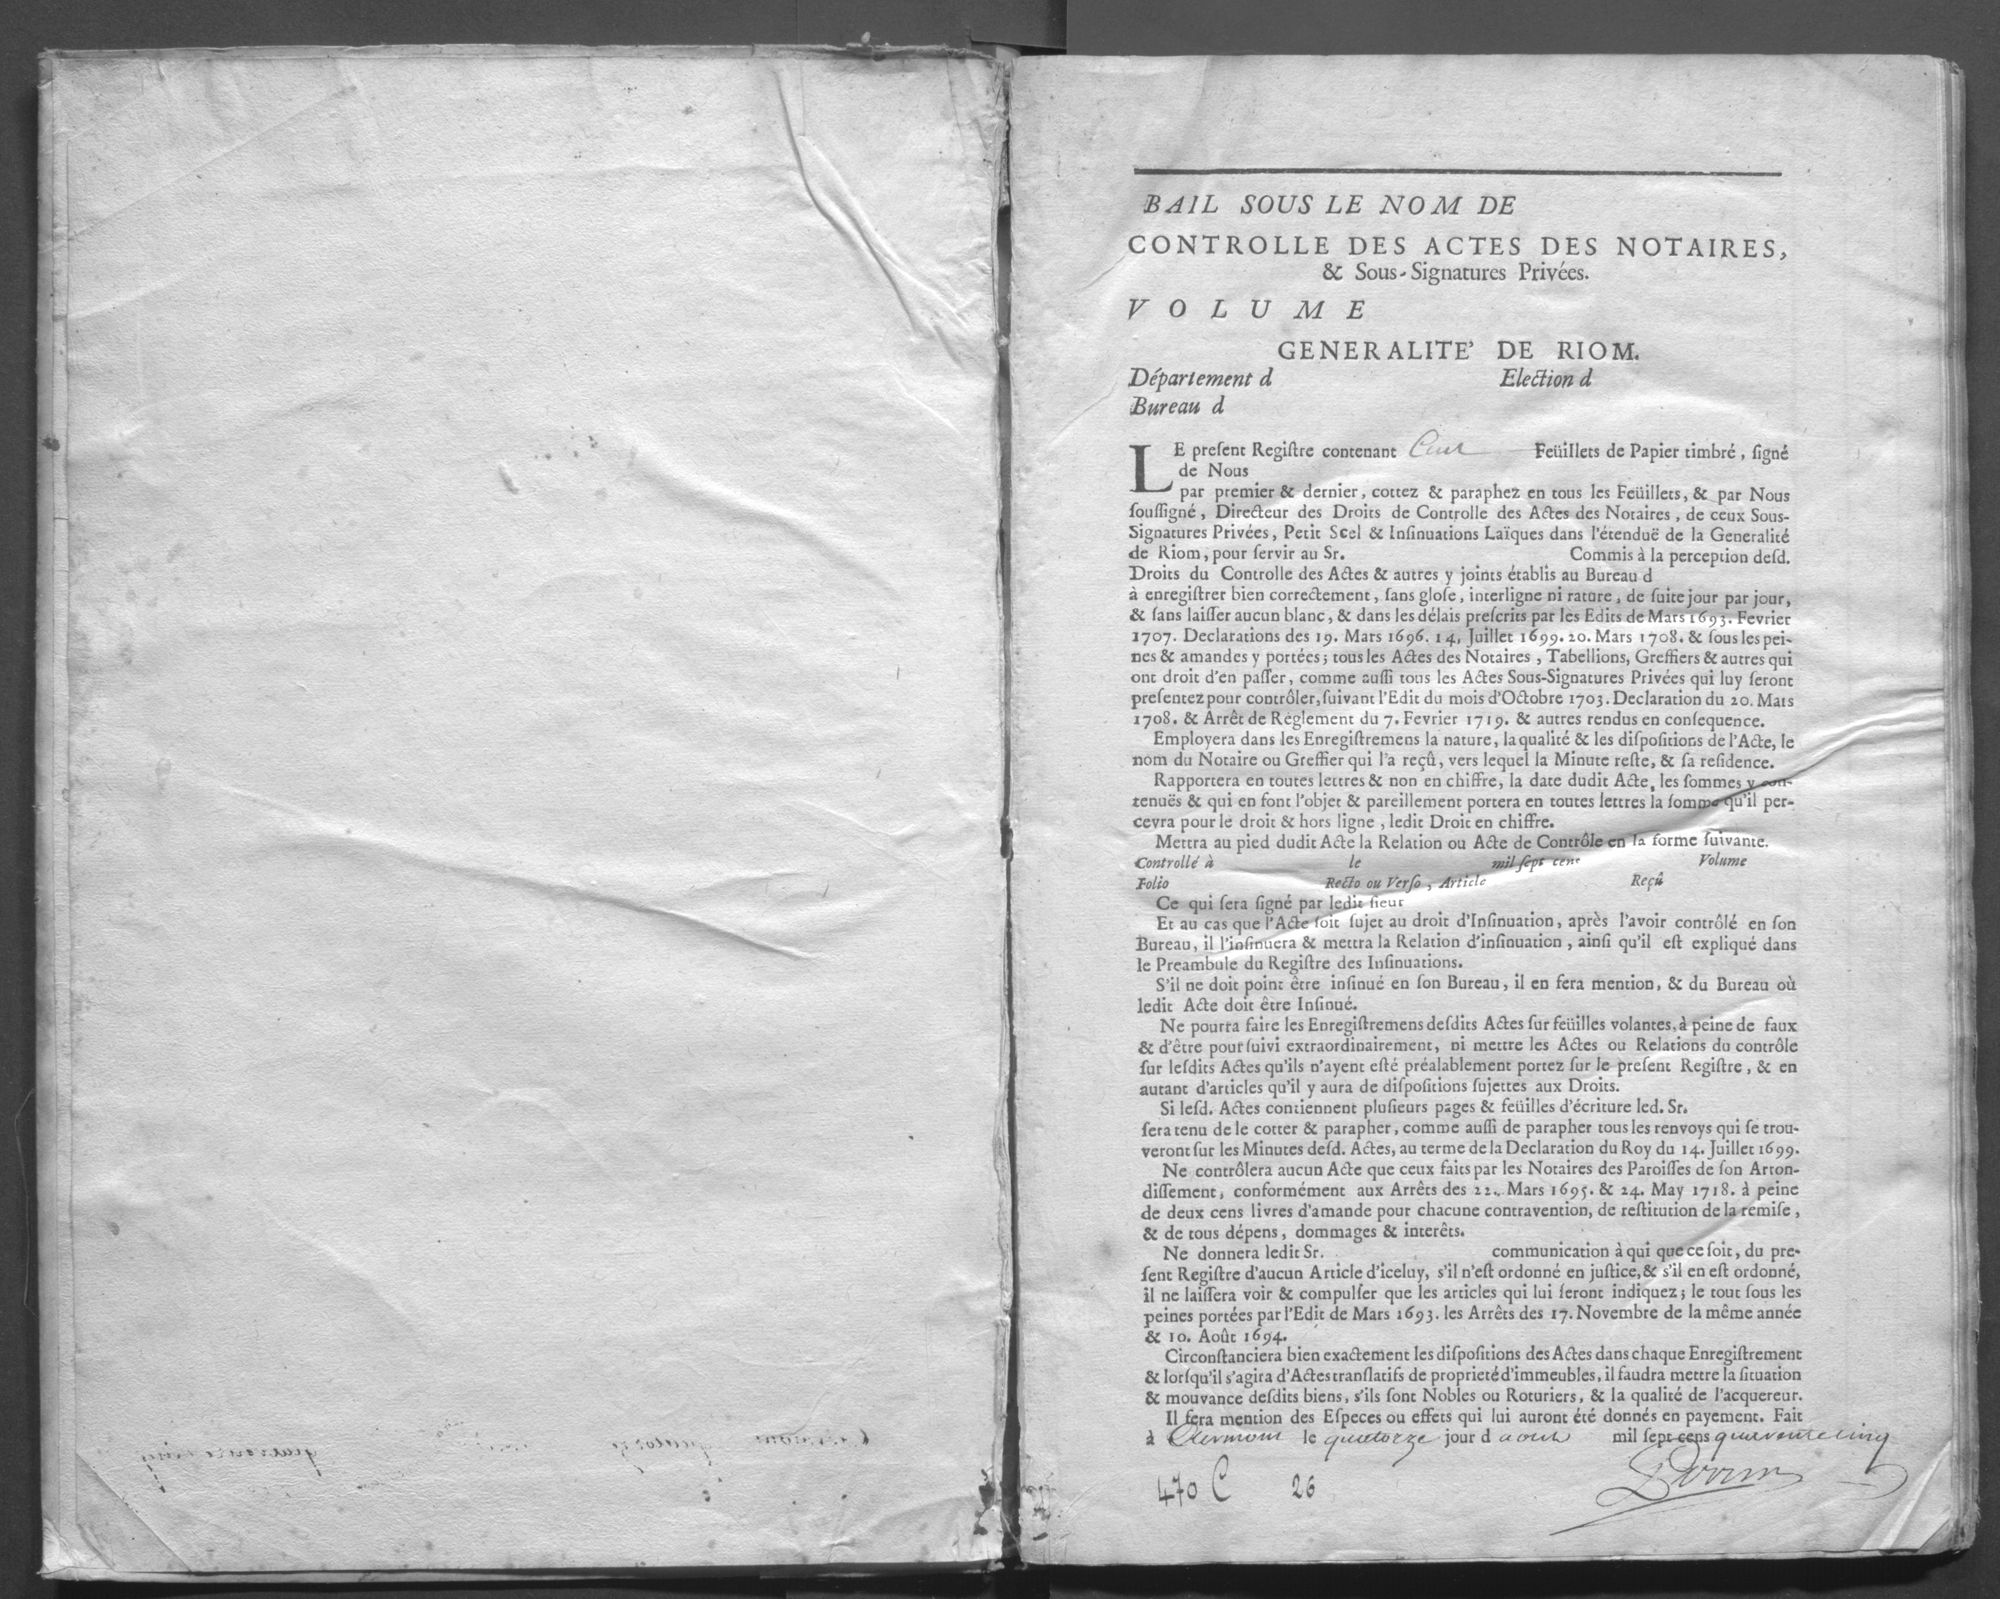 BAIL SOUS LE NOM DE
CONTROLLE DES ACTES DES NOTAIRES,
& Sous-Signatures Privées.
VOLUME
GENERALITE' DE RIOM.
Département d Election d
Bureau d
LE preſent Regiſtre contenant Cent Feüillets de Papier timbré, ſigné
de Nous
par premier & dernier, cottez & paraphez en tous les Feüillets, & par Nous
ſouſſigné, Directeur des Droits de Controlle des Actes des Notaires, de ceux Sous-
Signatures Privées, Petit Scel & Inſinuations Laïques dans l'étenduë de la Generalité
de Riom, pour ſervir au Sr. Commis à la perception deſd.
Droits du Controlle des Actes & autres y joints établis au Bureau d
à enregiſtrer bien correctement, ſans gloſe, interligne ni rature, de ſuite jour par jour,
& ſans laiſſer aucun blanc, & dans les délais preſcrits par les Edits de Mars 1693. Fevrier
1707. Declarations des 19. Mars 1696. 14. Juillet 1699. 20. Mars 1708. & ſous les pei-
nes & amandes y portées; tous les Actes des Notaires, Tabellions, Greffiers & autres qui
ont droit d'en paſſer, comme auſſi tous les Actes Sous-Signatures Privées qui luy ſeront
preſentez pour contrôler, ſuivant l'Edit du mois d'Octobre 1703. Declaration du 20. Mars
1708. & Arrêt de Règlement du 7. Fevrier 1719. & autres rendus en conſequence.
Employera dans les Enregiſtremens la nature, la qualité & les diſpoſitions de l'Acte, le
nom du Notaire ou Greffier qui l'a reçû, vers lequel la Minute reſte, & ſa reſidence.
Rapportera en toutes lettres & non en chiffre, la date dudit Acte, les ſommes y con-
tenuës & qui en font l'objet & pareillement portera en toutes lettres la ſomme qu'il per-
cevra pour le droit & hors ligne, ledit Droit en chiffre.
Mettra au pied dudit Acte la Relation ou Acte de Contrôle en la forme ſuivante.
Controllé à le mil ſept cens Volume
Folio Recto ou Verſo, Article Reçû
Ce qui ſera ſigné par ledit ſieur
Et au cas que l'Acte ſoit ſujet au droit d'Inſinuation, après l'avoir contrôlé en ſon
Bureau, il l'inſinuera & mettra la Relation d'inſinuation, ainſi qu'il eſt expliqué dans
le Preambule du Regiſtre des Inſinuations.
S'il ne doit point être inſinué en ſon Bureau, il en fera mention, & du Bureau où
ledit Acte doit être Inſinué.
Ne pourra faire les Enregiſtremens deſdits Actes ſur feüilles volantes, à peine de faux
& d'être pourſuivi extraordinairement, ni mettre les Actes ou Relations du contrôle
ſur leſdits Actes qu'ils n'ayent eſté préalablement portez ſur le preſent Regiſtre, & en
autant d'articles qu'il y aura de diſpoſitions ſujettes aux Droits.
Si leſd. Actes contiennent pluſieurs pages & feüilles d'écriture led. Sr.
ſera tenu de le cotter & parapher, comme auſſi de parapher tous les renvoys qui ſe trou-
veront ſur les Minutes deſd. Actes, au terme de la Declaration du Roy du 14. Juillet 1699.
Ne contrôlera aucun Acte que ceux faits par les Notaires des Paroiſſes de ſon Arron-
diſſement, conformément aux Arrêts des 22. Mars 1695. & 24. May 1718. à peine
de deux cens livres d'amande pour chacune contravention, de reſtitution de la remiſe,
& de tous dépens, dommages & interêts.
Ne donnera ledit Sr. communication à qui que ce ſoit, du pre-
ſent Regiſtre d'aucun Article d'iceluy, s'il n'eſt ordonné en juſtice, & s'il en eſt ordonné,
il ne laiſſera voir & compulſer que les articles qui lui ſeront indiquez; le tout ſous les
peines portées par l'Edit de Mars 1693. les Arrêts des 17. Novembre de la même année
& 10. Août 1694.
Circonſtanciera bien exactement les diſpoſitions des Actes dans chaque Enregiſtrement
& lorſqu'il s'agira d'Actes tranſlatifs de proprieté d'immeubles, il faudra mettre la ſituation
& mouvance deſdits biens, s'ils ſont Nobles ou Roturiers, & la qualité de l'acquereur.
Il fera mention des Eſpeces ou effets qui lui auront été donnés en payement. Fait
à Clermont le quatorze jour d aout mil ſept cens quarente cinq
470 C 26